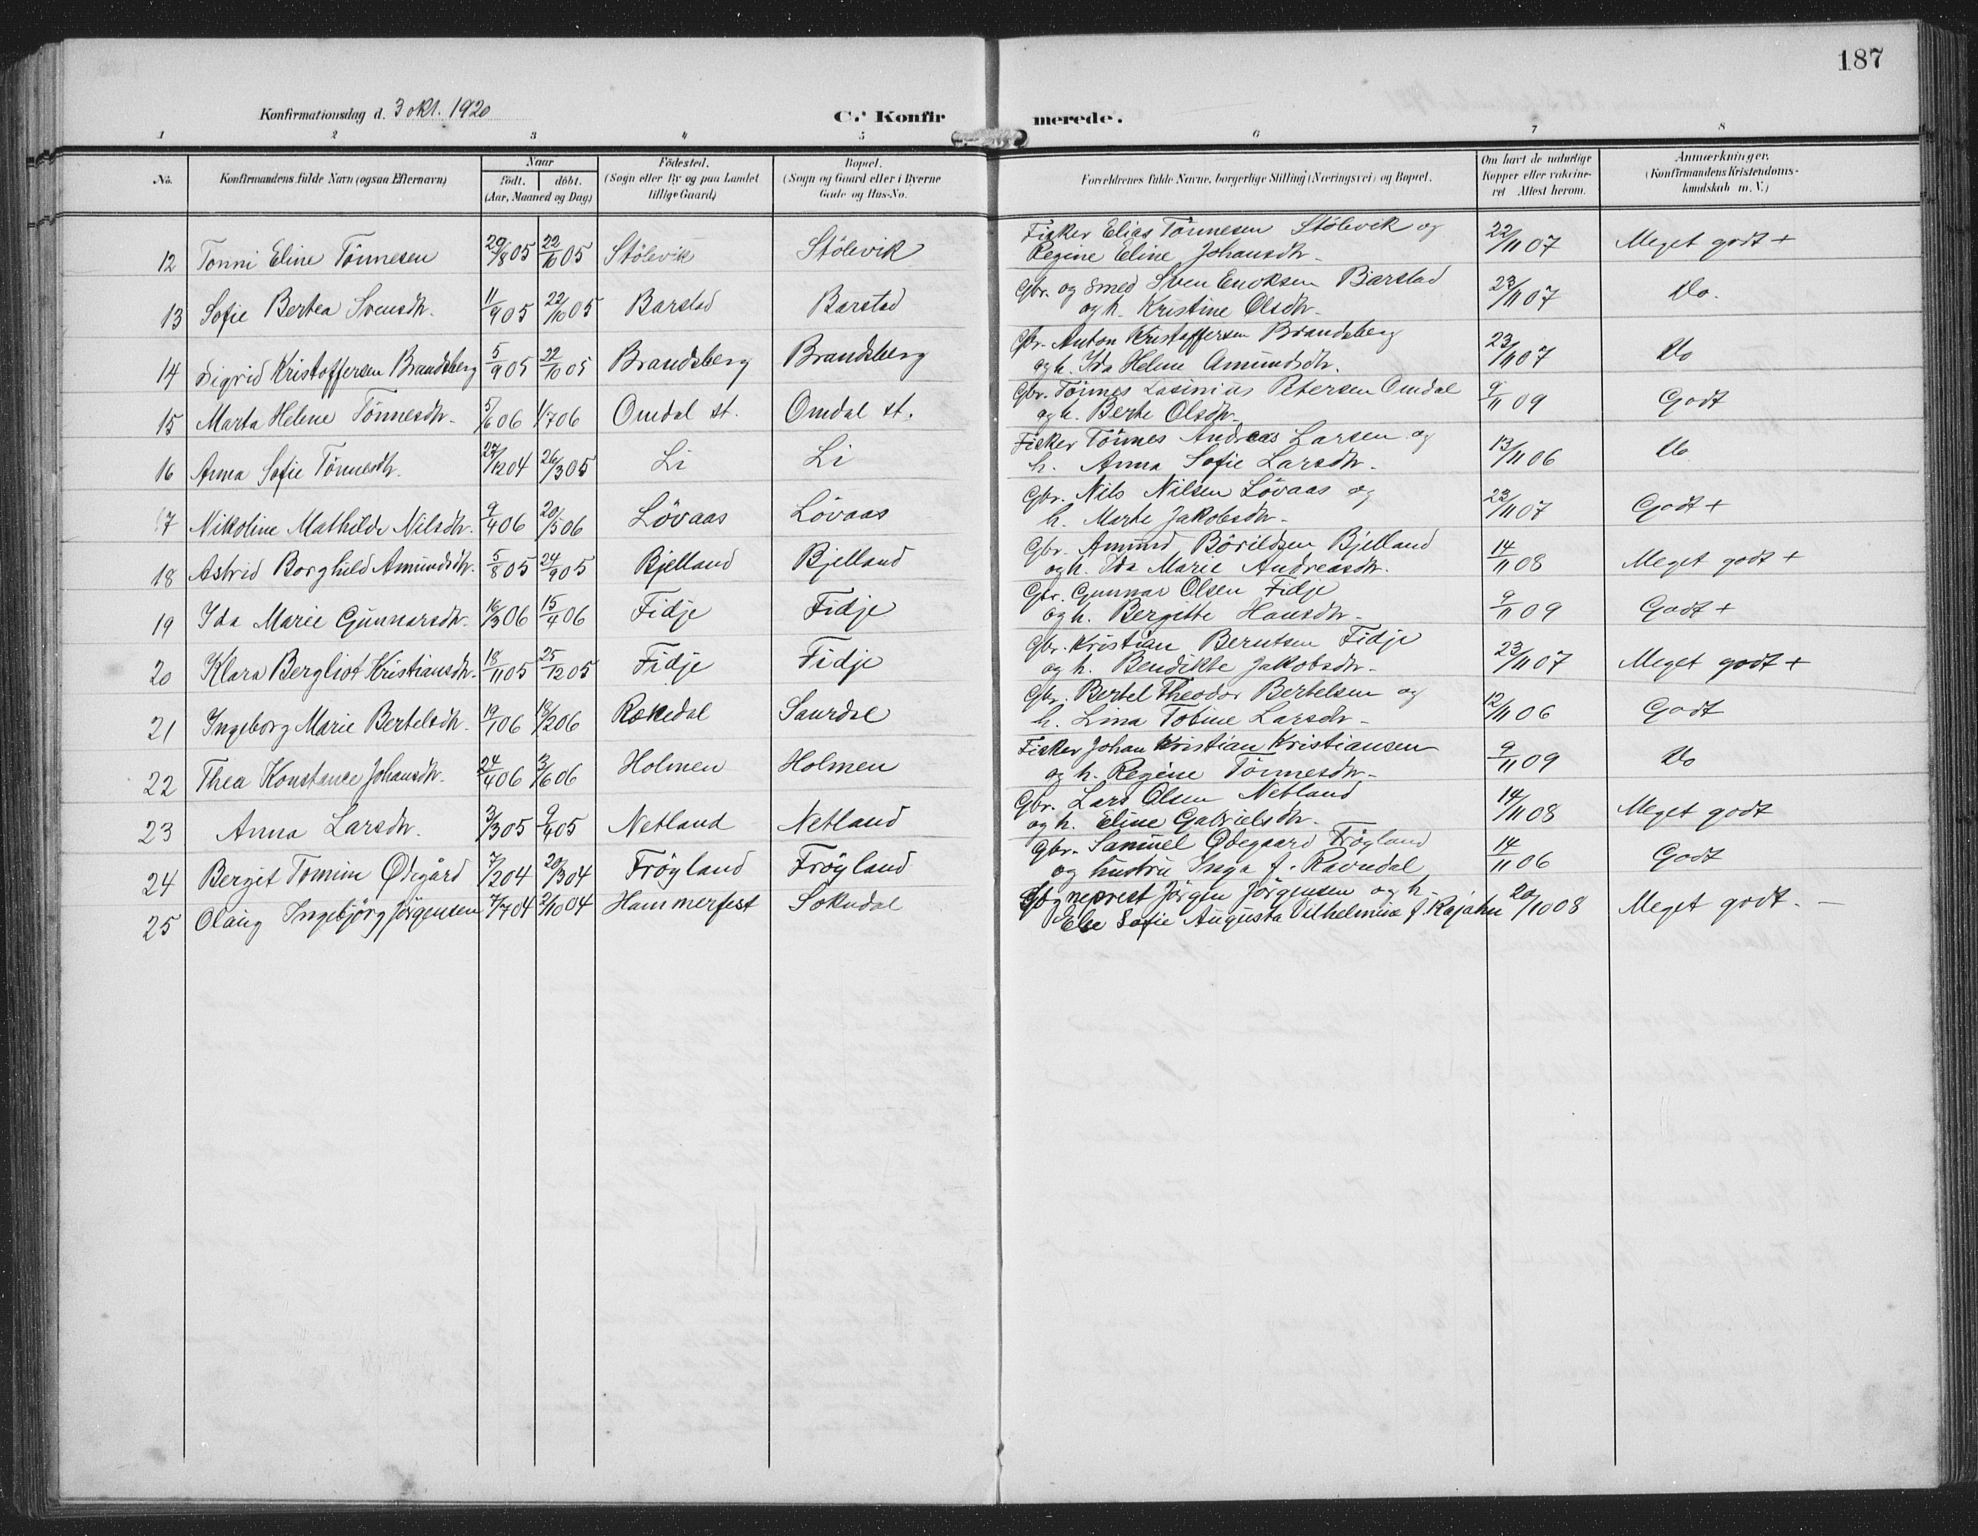 187
Konfirmationsdag d. 3 okt. 1920
C. Konfirmerede.
1 2 3 4 5 6 7 8
No. Konfirmandens fulde Navn (ogsaa Efternavn) Naar født. døbt. (Aar, Maaned og Dag) Fødested. (Sogn eller By og paa Landet tillige Gaard) Bopæl. (Sogn og Gaard eller i Byerne Gade og Hus-No. Forældrenes fulde Navne, borgerlige Stilling (Næringsvei) og Bopæl. Om havt de naturlige Kopper eller vakcineret Attest herom. Anmærkninger. (Konfirmandens Kristendomskundskab m. V.)
12 Tonni Eline Tönnesen 29/8 05 22/10 05 Stölevik Stölevik Fisker Elias Tönnesen Stölevik og
Regine Eline Johansdtr. 22/11 07 Meget godt +
13 Sofie Bertea Svensdtr. 11/9 05 22/10 05 Barstad Barstad Gbr. og Smed Sven Enoksen Barstad
og h. Kristine Olsdtr. 23/11 07 Do.
14 Sigrid Kristoffersen Brandsberg 5/9 05 22/10 05 Brandsberg Brandsberg Gbr. Anton Kristoffersen Brandsberg
og h. Ida Helene Amundsdtr. 23/11 07 Do
15 Marta Helene Tönnesdtr. 5/6 06 1/7 06 Omdal st. Omdal st. Gbr. Tönnes Lasinius Petersen Omdal
og h. Berte Olsdtr. 9/11 09 Godt
16 Anna Sofie Tönnesdtr. 27/12 04 26/3 05 Li Li Fisker Tönnes Andreas Larsen og
h. Anna Sofie Larsdtr. 13/11 06 Do
17 Nikoline Mathilde Nilsdtr. 9/4 06 20/5 06 Lövaas Lövaas Gbr. Nils Nilsen Lövaas og
h. Marte Jakobsdtr. 23/11 07 Godt +
18 Astrid Borghild Amundsdtr. 5/8 05 24/9 05 Bjelland Bjelland Gbr. Amund Börildsen Bjelland
og h. Ida Marie Andreasdtr. 14/11 08 Meget godt +
19 Ida Marie Gunnarsdtr. 16/3 06 15/4 06 Fidje Fidje Gbr. Gunnar Olsen Fidje
og h. Bergitte Hansdtr. 9/11 09 Godt +
20 Klara Bergliot Kristiansdtr. 18/11 05 25/12 05 Fidje Fidje Gbr. Kristian Berntsen Fidje
og h. Bendikte Jakobsdtr. 23/11 07 Meget godt +
21 Ingeborg Marie Bertelsdtr. 19/1 06 18/2 06 Rækedal Saurdal Gbr. Bertel Theodor Bertelsen og
h. Lina Tobine Larsdtr. 12/11 06 Godt
22 Thea Konstance Johansdtr. 24/4 06 3/6 06 Holmen Holmen Fisker Johan Kristian Kristiansen
og h. Regine Tönnesdtr. 9/11 09 Do
23 Anna Larsdtr. 3/3 05 9/4 05 Netland Netland Gbr. Lars Olsen Netland
og h. Eline Gabrielsdtr. 14/11 08 Meget godt
24 Berget Tomine Ødegård 7/2 04 20/3 04 Fröyland Fröyland Gbr. Samuel Ødegaard Fröyland
og hustru Inga f. Ravndal 14/11 06 Godt
25 Olaug Ingebjörg Jörgensen 7/7 04 2/10 04 Hammerfest Sokndal Sogneprest Jörgen Jörgensen og h.
Else Sofie Augusta Vilhelmine f. Rajahn 20/10 08 Meget godt.